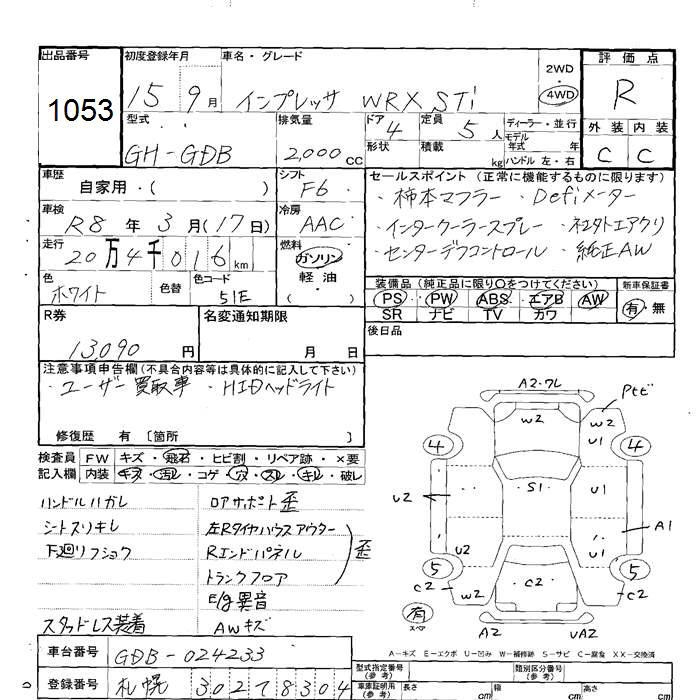 出品番号
1053
初度登録年月
15 9月
車名・グレード
インプレッサ WRX STi
2WD
・
4WD
評価点
R
外装 内装
C C
型式
GH-GDB
排気量
2,000cc
ドア 4
形状
定員 5人
積載 kg
ディーラー・並行
モデル
年式 年
ハンドル 左・右
車歴
自家用・( )
シフト
F6
車検
R8年3月(17日)
冷房
AAC
走行
20万4千016km
燃料
ガソリン
軽油
( )
色
ホワイト
色替
色コード
51E
セールスポイント (正常に機能するものに限ります)
・柿本マフラー ・Defiメーター
・インタークーラースプレー ・社外エアクリ
・センターデフコントロール ・純正AW
装備品 (純正品に限り○をつけてください)
PS・PW・ABS・エアB・AW
SR ナビ TV カワ
新車保証書
有・無
後日品
R券
13,090円
名変通知期限
月 日
注意事項申告欄 (不具合内容等は具体的に記入して下さい)
・ユーザー買取車 ・HIDヘッドライト
修復歴 有 〔箇所 〕
検査員記入欄
FW キズ・飛石・ヒビ割・リペア跡・×要
内装 キズ・汚レ・コゲ・穴・スレ・キレ・破レ
ハンドルハガレ
シートスリキレ
下廻リフショク
スタッドレス装着
ロアサポート歪
左Rタイヤハウスアウター
Rエンドパネル
トランクフロア
歪
E/g異音
AWキズ
A2・フL
Ptビ
W2
W2
U1
4
4
U2
S1
U1
A1
U2
U1
5
5
C2
W2
C2
W2
C2
有
スペア
A2
UA2
A-キズ E-エクボ U-凹み W-補修跡 S-サビ C-腐食 XX-交換済
車台番号
GDB-024233
登録番号
札幌 302 た 8304
型式指定番号
(参考)
類別区分番号
(参考)
車庫証明用
(参考)
長さ cm
幅 cm
高さ cm